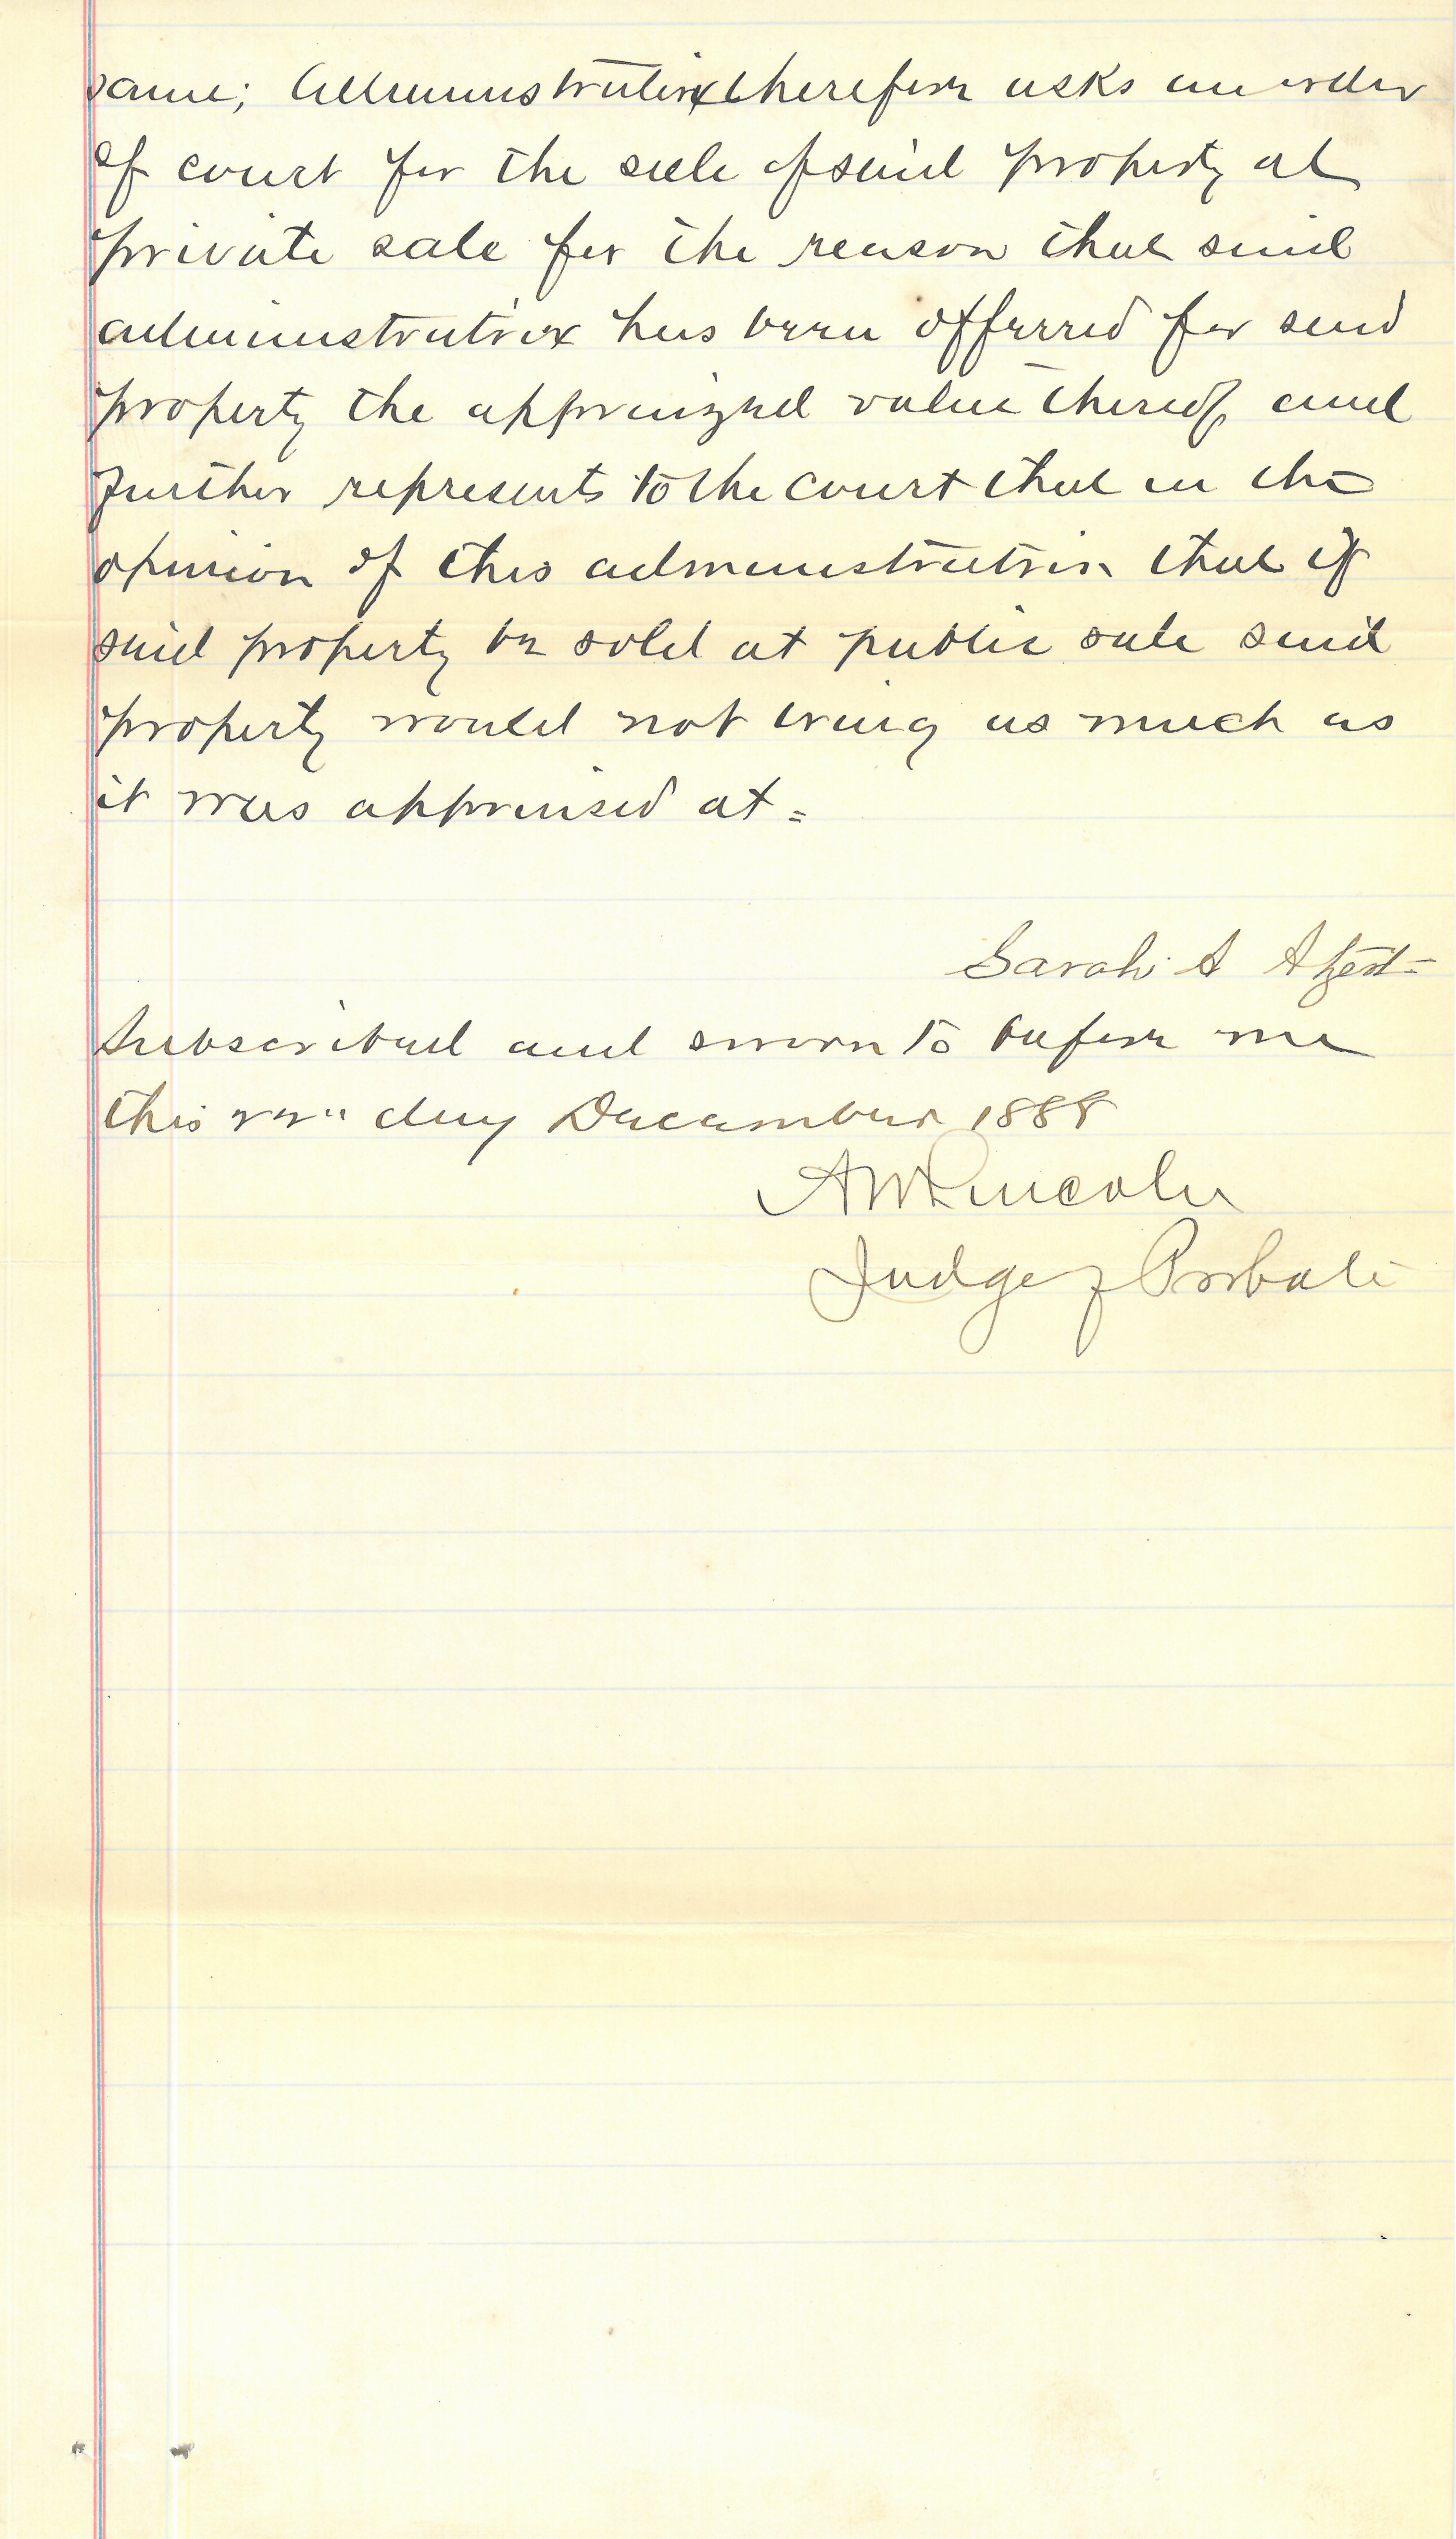 same; Administratrix therefore asks an order
of court for the sale of said property at
private sale for the reason that said
administratrix has been offered for said
property the appraized value thereof, and
further represents to the court that in the
opinion of this administratrix that if
said property be sold at public sale said
property would not bring as much as
it was appraised at.
Sarah A
Subscribed and sworn to before me
this day December 1888
A W Lincoln
Judge of Probate